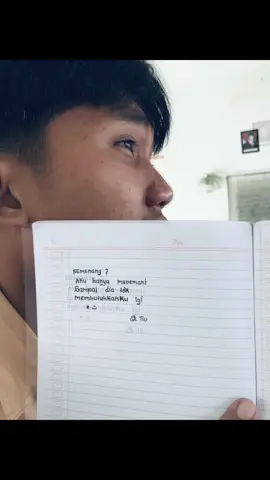 pemenang?
Aku hanya menemani
Sampai dia tdk
membutuhkanku lgi